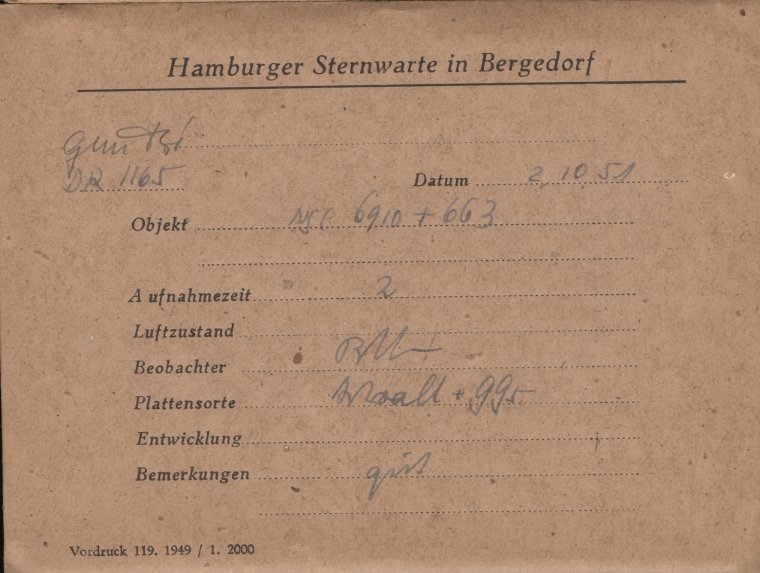 Hamburger Sternwarte in Bergedorf
DR 1165
Datum 2. 10. 51
Objekt NGC 6910 + 663
Aufnahmezeit 2
Luftzustand
Beobachter
Plattensorte + 99r
Entwicklung
Bemerkungen gut
Vordruck 119. 1949 / 1. 2000